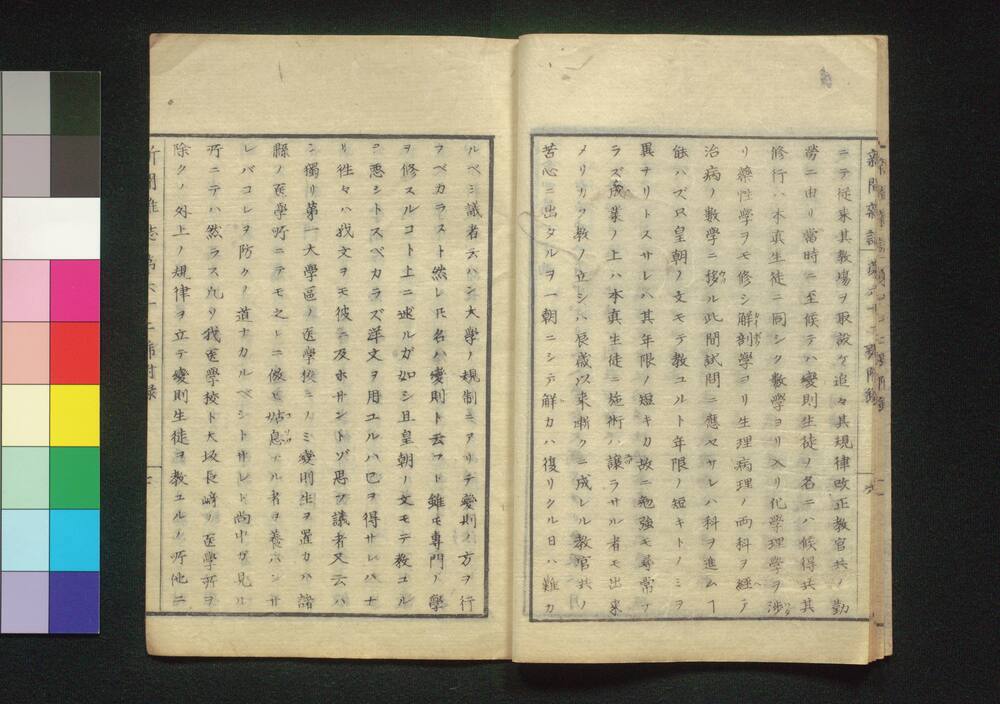 新聞雑誌 第六十二號附録 六
ニテ従来其教場ヲ取設ケ追々其規律改正教官共ノ勤
勞ニ由リ當時ニ至候テハ變則生徒ノ名ニハ候得共其
修行ハ本真生徒ニ同シク數學ヨリ入リ化學理學ヲ渉
リ藥性學ヲモ修シ解剖學ヨリ生理病理ノ両科ヲ經テ
治病ノ數學ニ移ル此間試問ニ應セサレハ科ヲ進ムヿ
能ハズ只皇朝ノ文モテ教ユルト年限ノ短キトノミヲ
異ナリトスサレハ其年限ノ短キカ故ニ勉強モ尋常ナ
ラズ成業ノ上ハ本真生徒ニ施術ハ讓ラサル者モ出来
メリカク教ノ立シハ辰歳以来漸クニ成レル教官共ノ
苦心ニ出タルヲ一朝ニシテ解カハ復リクル日ハ難カ
ルベシ議者云ハン大學ノ規制ニアリテ變則ノ方ヲ行
フベカラスト然レ𪜈名ハ變則ト云フト雖モ専門ノ學
ヲ修スルコト上ニ述ルガ如シ且皇朝ノ文モテ教ユル
ヲ悪シトスベカラズ洋文ヲ用ユルハ已ヲ得サレハナ
リ往々ハ我文ヲモ彼ニ及ホサントゾ思フ議者又云ハ
ン獨リ第一大學區ノ医學校ニノミ變則生ヲ置カハ諸
縣ノ医學所ニテモ之レニ倣ヒ姑息ナル者ヲ養ハンサ
レバコレヲ防クノ道ナカルベシトサレド尚中ガ見ル
所ニテハ然ラス凡リ我医學校ト大坂長崎ノ医學所ヲ
除クノ外上ノ規律ヲ立テ變則生徒ヲ教ユルノ所他ニ
新聞雑誌 第六十二號附録